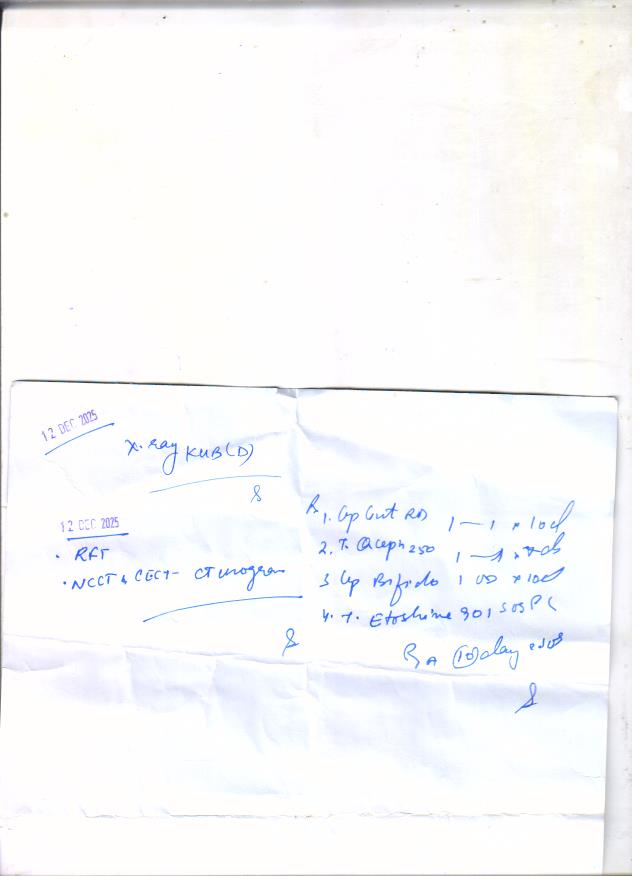 12 DEC 2025
X-ray KUB (D)
12 DEC 2025
• RFT
• NCCT & CECT - CT urogram
Rx
1. Cap Gut RD 1—1 x 10d
2. T. Qceph 250 1—1 x
3. Cap Bifido 1 OD x 10d
4. T. Etoshine 90 1 SOS